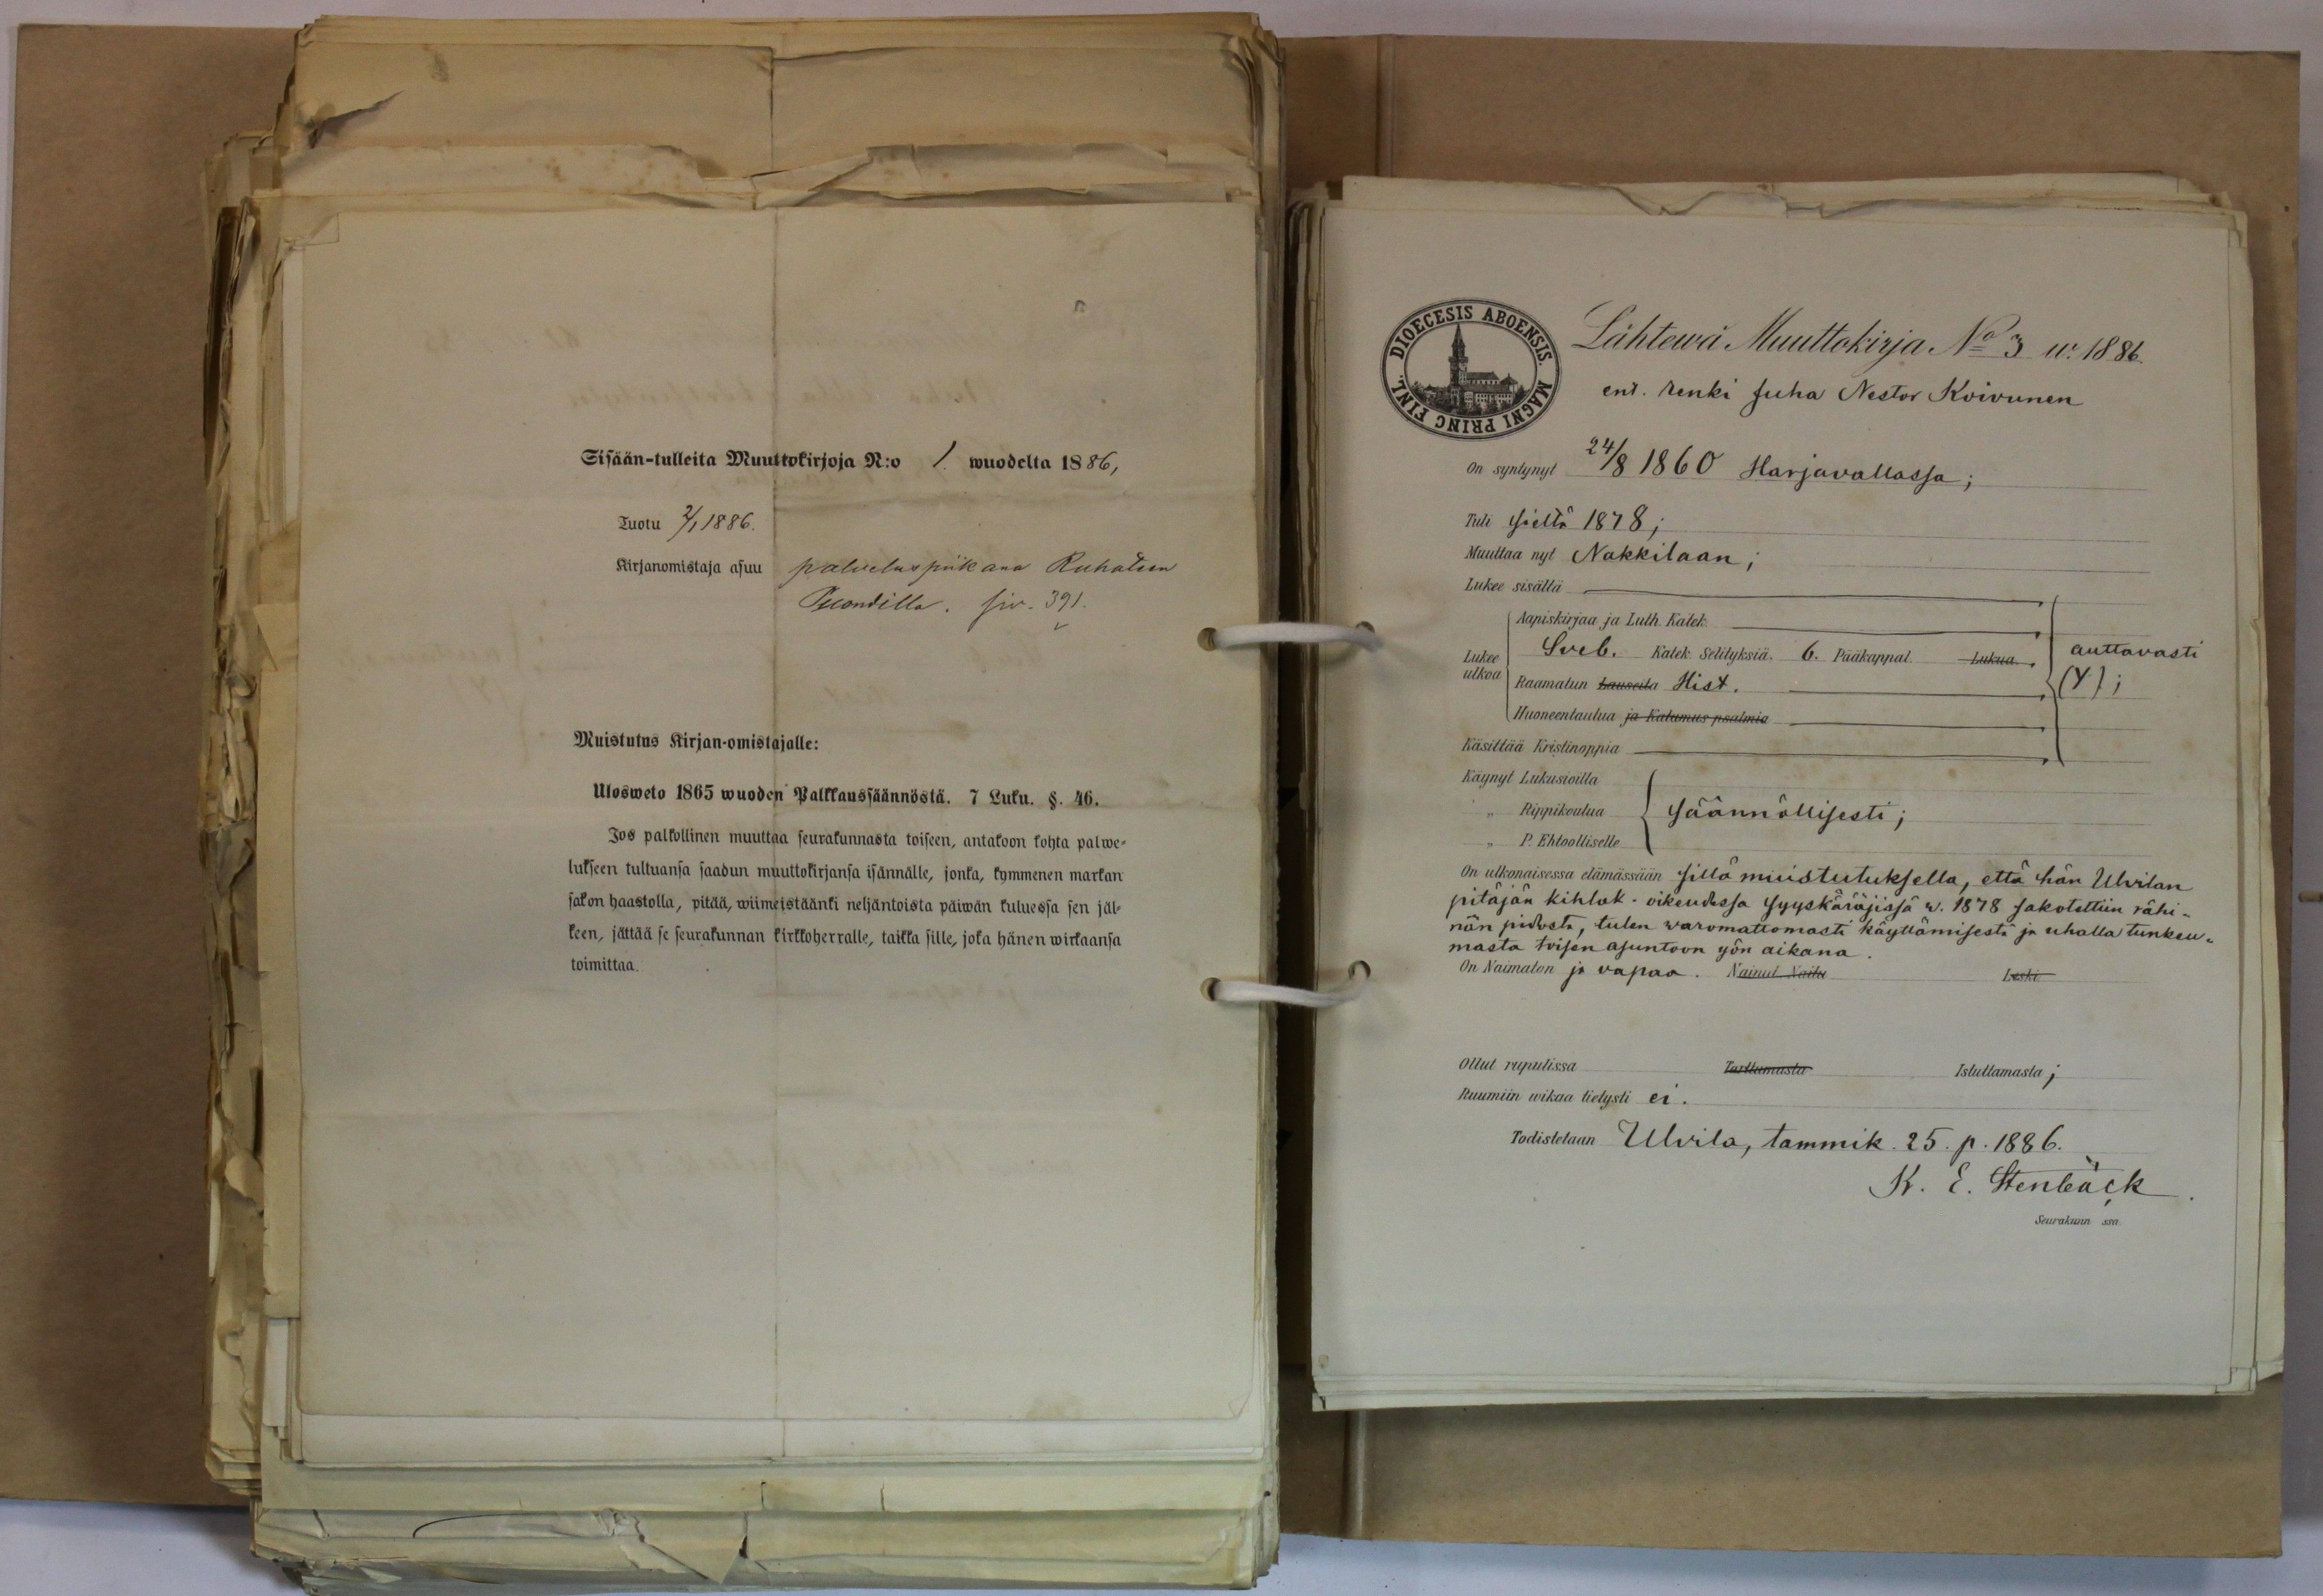 Sisään-tulleita Muuttokirjoja N:o 1. wuodelta 1886,
Tuotu 2/1 1886.
Kirjanomistaja asuu palveluspiikana Ruhateen
siv. 391.
Muistutus Kirjan-omistajalle:
Ulosweto 1865 wuoden Palkkaussäännöstä. 7 Luku. §. 46.
Jos palkollinen muuttaa seurakunnasta toiseen, antakoon kohta palwe-
lukseen tultuansa saadun muuttokirjansa isännälle, jonka, kymmenen markan
sakon haastolla, pitää, wiimeistäänki neljäntoista päiwän kuluessa sen jäl-
keen, jättää se seurakunnan kirkkoherralle, taikka sille, joka hänen wirkaansa
toimittaa.
DIOECESIS ABOENSIS. MAGNI PRINC FINL.
Lähtewä Muuttokirja No 3 w. 1886.
ent. renki Juha Nestor Koivunen
On syntynyt 24/8 1860 Harjavallassa;
Tuli sieltä 1878;
Muuttaa nyt Nakkilaan;
Lukee sisältä
Aapiskirjaa ja Luth. Katek.
Lukee ulkoa Sveb. Katek. Selityksiä. 6. Pääkappal. Lukua. auttavasti
Raamatun Lauseita Hist. (Y);
Huoneentaulua ja Katumus psalmia
Käsittää Kristinoppia
Käynyt Lukusioilla
„ Rippikoulua säännöllisesti;
„ P. Ehtoolliselle
On ulkonaisessa elämässään sillä muistutuksella, että hän Ulvilan
pitäjän kihlak. oikeudessa syyskäräjissä w. 1878 sakotettiin rähi-
nän pidosta, tulen waromattomasti käyttämisestä ja uhalla tunkeu-
masta toisen asuntoon yön aikana.
On Naimaton ja vapaa. Nainut Naitu Leski.
Ollut rupulissa Tarttumasta Istuttamasta;
Ruumiin wikaa tietysti ei.
Todistetaan Ulvila, tammik. 25. p. 1886.
K. E. Stenbäck.
Seurakunn ssa.